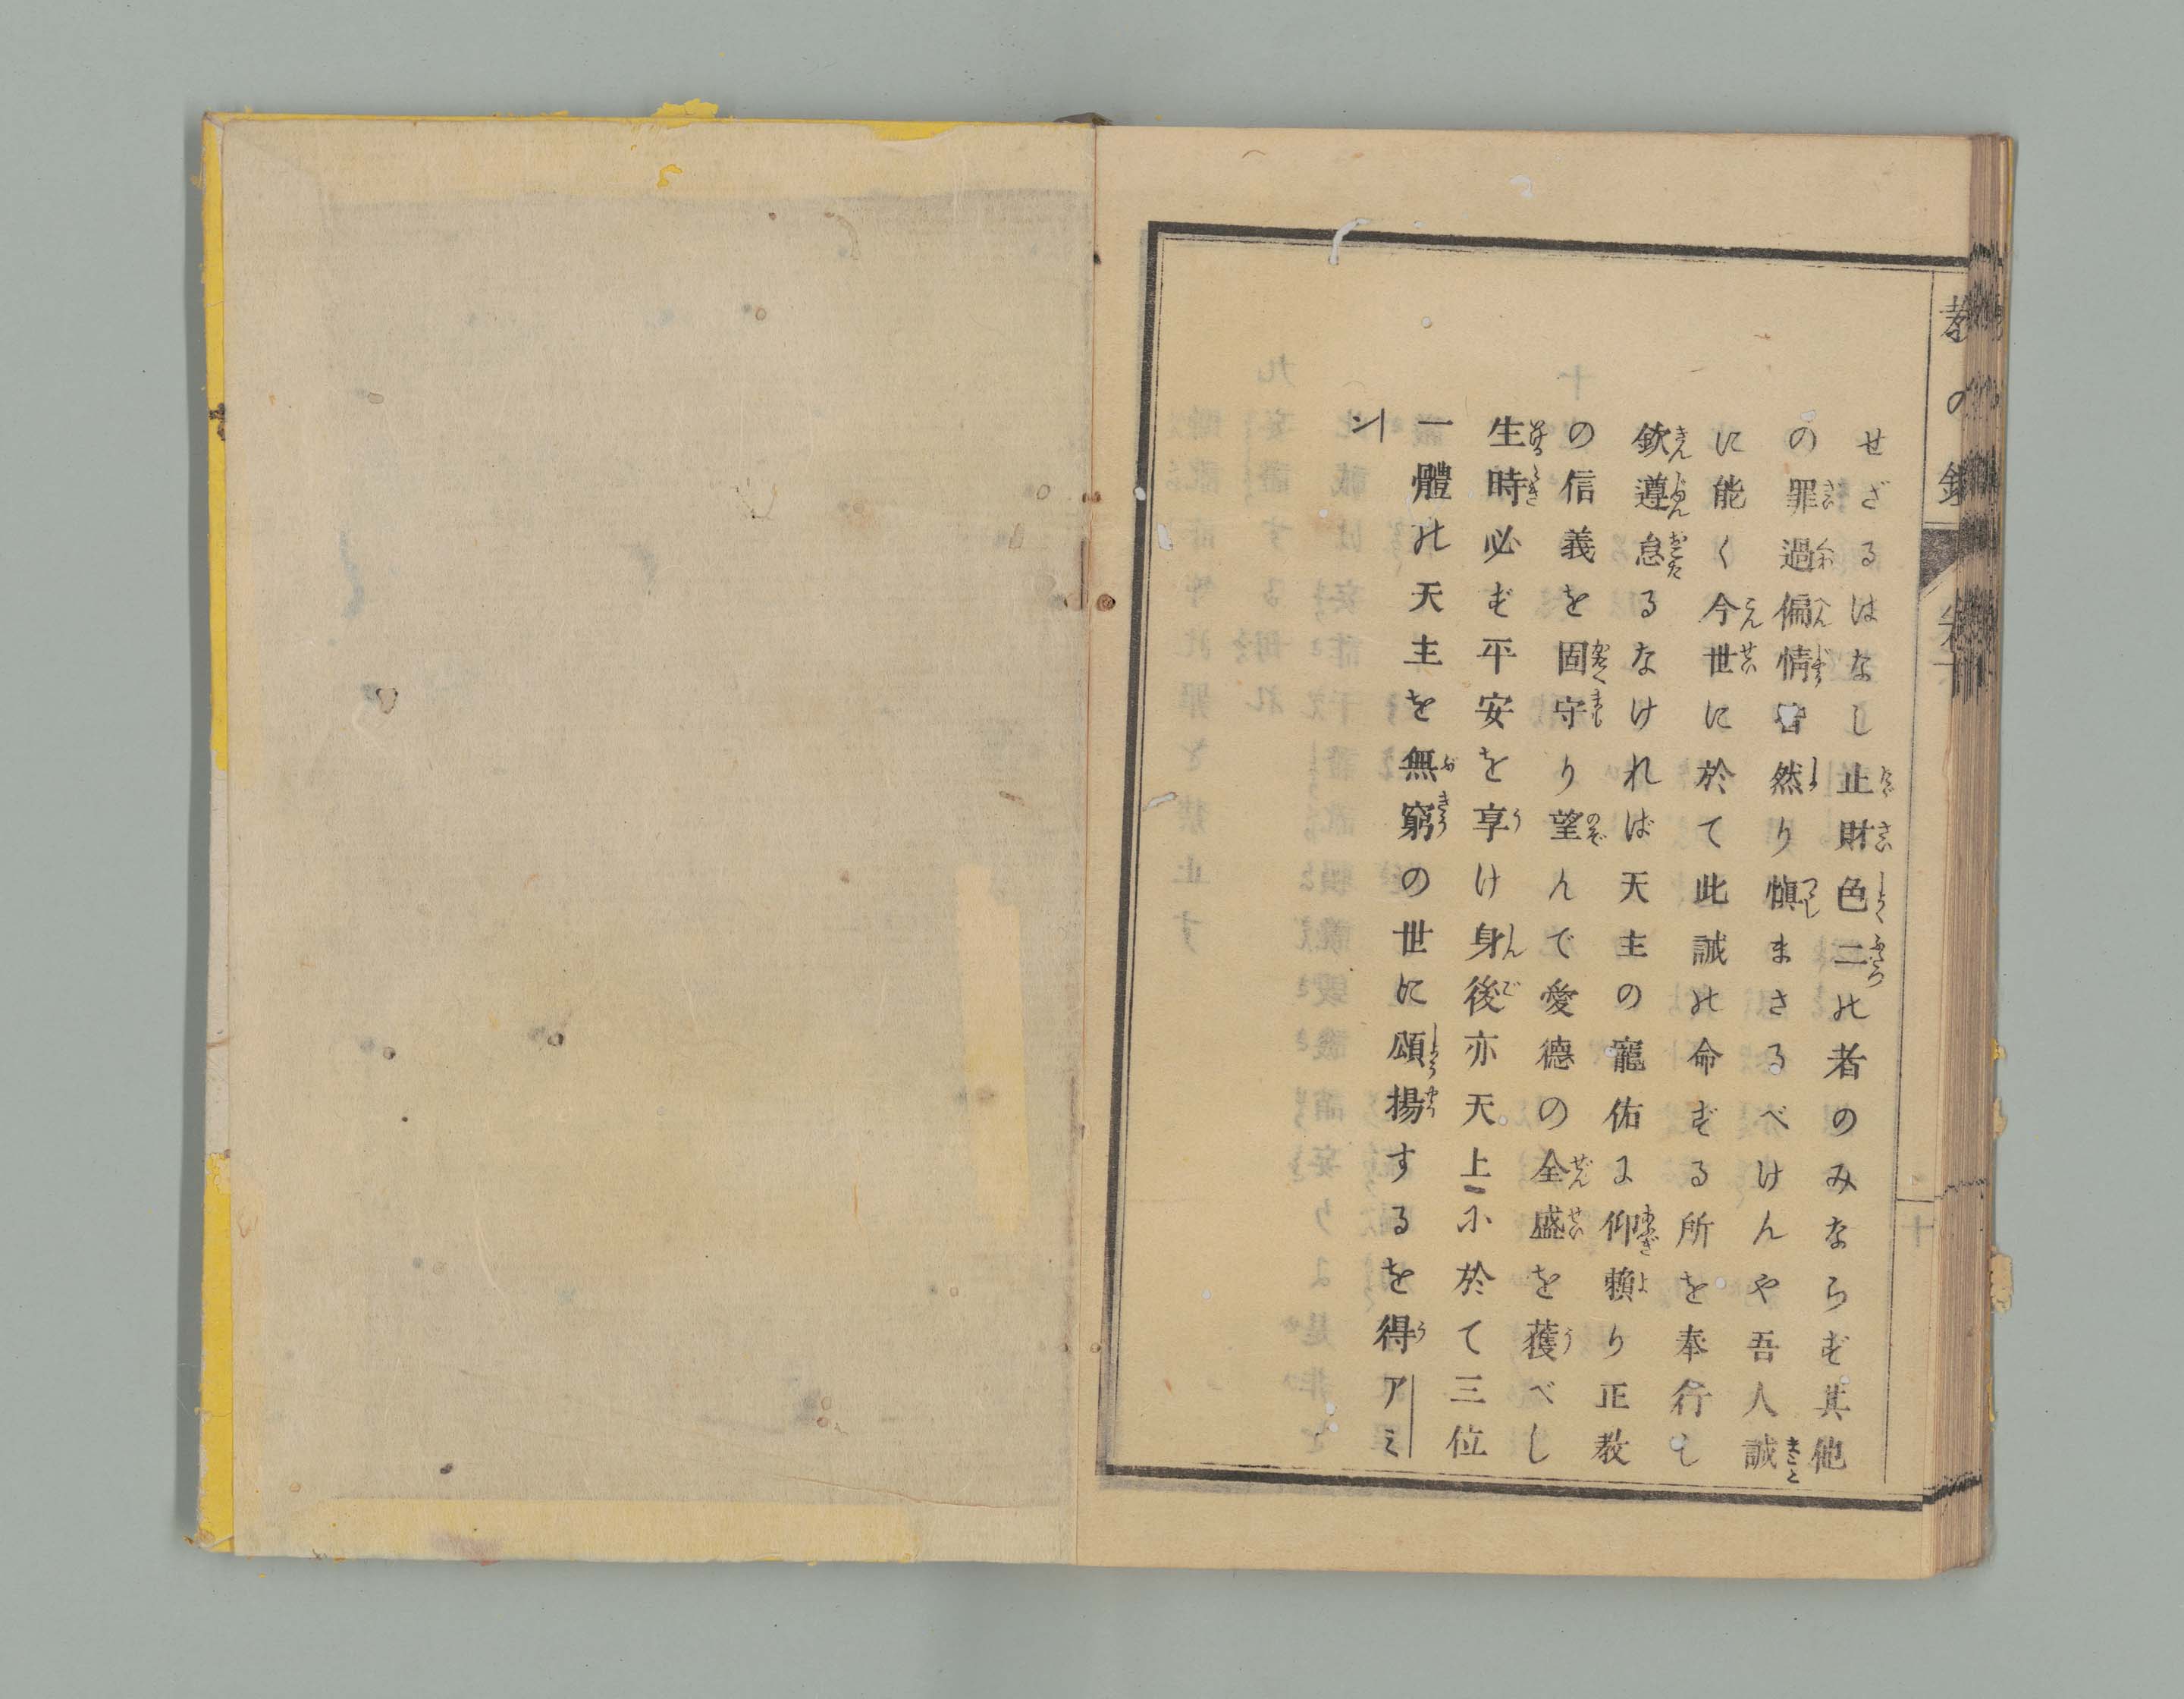 せざるはなし止財色二の者のみならず其他
の罪過偏情皆然り慎まさるべけんや吾人誠
に能く今世に於て此誡の命ずる所を奉行し
欽遵怠るなければ天主の寵佑に仰頼り正教
の信義を固守り望んで愛德の全盛を獲べし
生時必ず平安を享け身後亦天上に於て三位
一體の天主を無窮の世に頌揚するを得アミ
ン
教の鑑
十